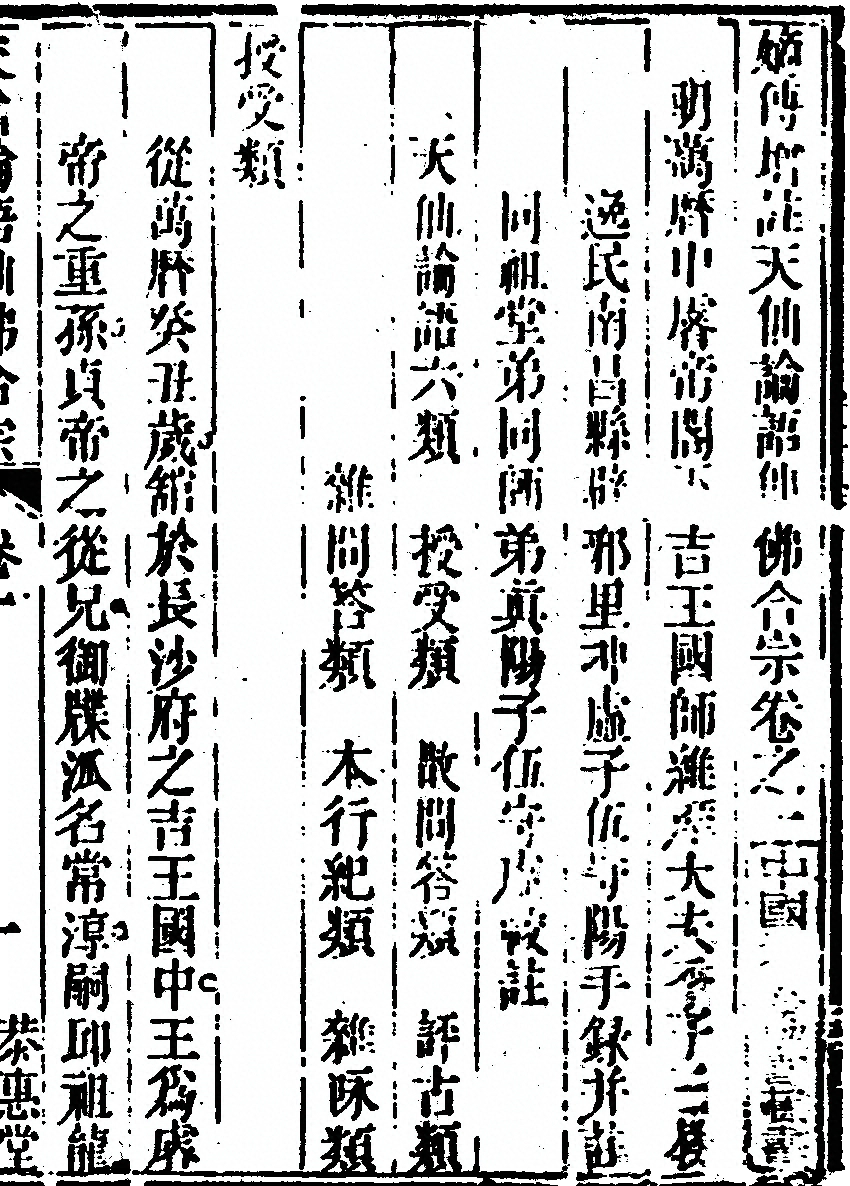 傳增註天仙論語仙佛合宗卷之二 中國
明萬曆中睿帝閣下 吉王國師維摩大夫季子三發
逸民南昌縣辟邪里冲虛子伍守陽手錄并註
同祖堂弟同師弟真陽子伍守虛較註
天仙論語六類 授受類 散問答類 評古類
雜問答類 本行紀類 雜咏類
授受類
從萬曆癸丑歲舘於長沙府之吉王國中王爲肅
帝之重孫真帝之從兄御牒派名常淳嗣邱祖龍
天仙論語仙佛合宗 卷二 一 恭惠堂